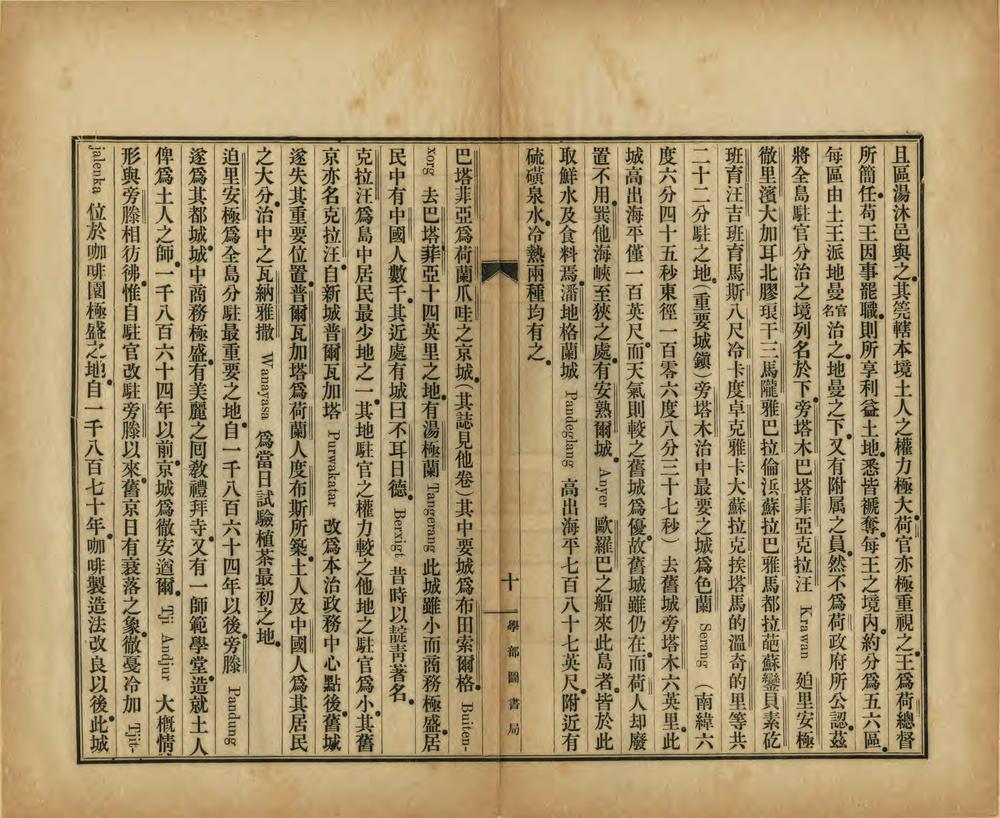 且區湯沐邑與之其筦轄本境土人之權力極大荷官亦極重視之王爲荷總督
所簡任苟王因事罷職則所享利益土地悉皆褫奪每王之境內約分爲五六區
每區由土王派地曼官名治之地曼之下又有附属之員然不爲荷政府所公認茲
將全島駐官分治之境列名於下旁塔木巴塔菲亞克拉汪 Krawan 廹里安極
徹里濱大加耳北膠琅干三馬隴雅巴拉倫浜蘇拉巴雅馬都拉葩蘇鑾貝素矻
班育汪吉班育馬斯八尺冷卡度卓克雅卡大蘇拉克挨塔馬的溫奇的里等共
二十二分駐之地(重要城鎭)旁塔木治中最要之城爲色蘭 Serang (南緯六
度六分四十五秒東徑一百零六度八分三十七秒)去舊城旁塔木六英里此
城高出海平僅一百英尺而天氣則較之舊城爲優故舊城雖仍在而荷人却廢
置不用巽他海峽至狹之處有安熟爾城 Anyer 歐羅巴之船來此島者皆於此
取鮮水及食料焉潘地格蘭城 Pandeglang 高出海平七百八十七英尺附近有
硫磺泉水冷熱兩種均有之
十
學部圖書局
巴塔菲亞爲荷蘭爪哇之京城(其誌見他卷)其中要城爲布田索爾格 Buiten-
xorg 去巴塔菲亞十四英里之地有湯極蘭 Tangerang 此城雖小而商務極盛居
民中有中國人數千其近處有城曰不耳日德 Berxigt 昔時以靛靑著名
克拉汪爲島中居民最少地之一其地駐官之權力較之他地之駐官爲小其舊
京亦名克拉汪自新城普爾瓦加塔 Purwakatar 改爲本治政務中心點後舊城
遂失其重要位置普爾瓦加塔爲荷蘭人度布斯所築土人及中國人爲其居民
之大分治中之瓦納雅撒 Wanayasa 爲當日試驗植茶最初之地
迫里安極爲全島分駐最重要之地自一千八百六十四年以後旁滕 Pandung
遂爲其都城城中商務極盛有美麗之回敎禮拜寺又有一師範學堂造就土人
俾爲土人之師一千八百六十四年以前京城爲徹安遒爾 Tji Andjur 大概情
形與旁滕相彷彿惟自駐官改駐旁滕以來舊京日有衰落之象徹戞冷加 Tjit-
jalenka 位於咖啡園極盛之地自一千八百七十年咖啡製造法改良以後此城